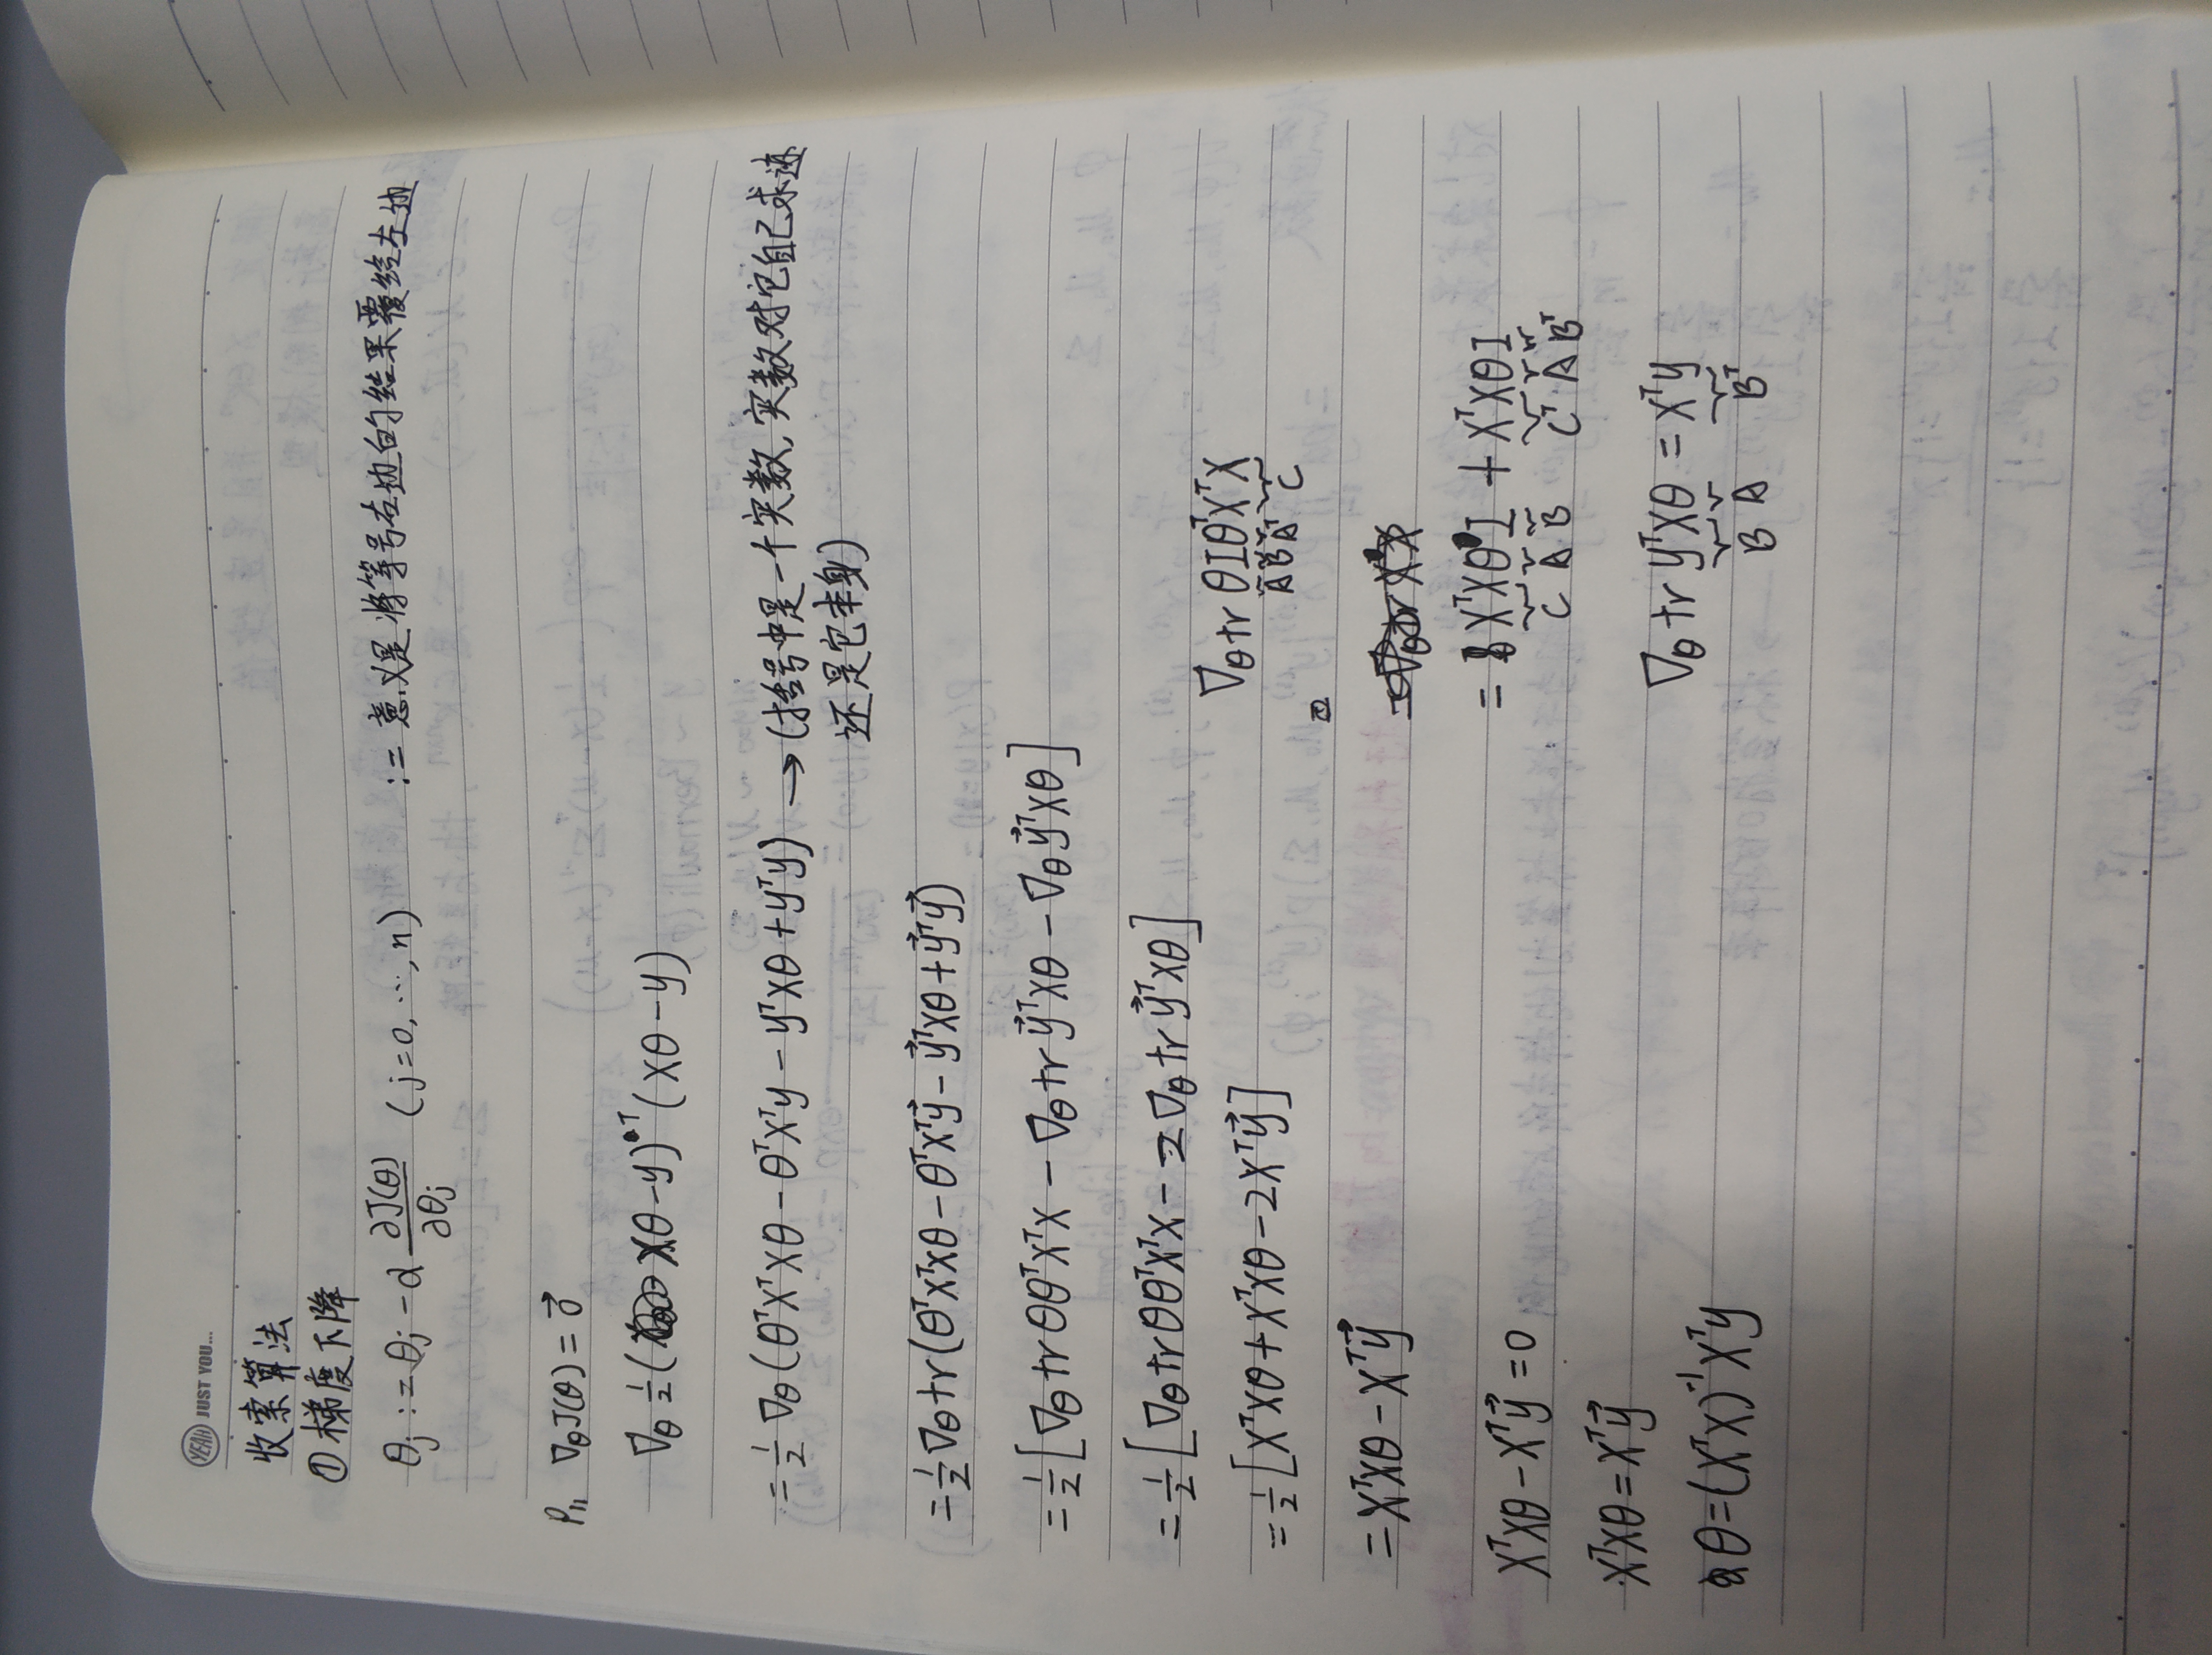 YEAH JUST YOU...
收索算法
① 梯度下降
θj := θj - α ∂J(θ)/∂θj (j=0, ⋯, n) := 意义是将等号右边的结果覆给左边
P11 ∇θJ(θ) = 0⃗
∇θ ½(Xθ-y)ᵀ(Xθ-y)
= ½ ∇θ(θᵀXᵀXθ - θᵀXᵀy - yᵀXθ + yᵀy) → (括号中是一个实数, 实数对它自己求迹
还是它本身)
= ½ ∇θ tr(θᵀXᵀXθ - θᵀXᵀy⃗ - y⃗ᵀXθ + y⃗ᵀy⃗)
= ½[∇θ tr θθᵀXᵀX - ∇θ tr y⃗ᵀXθ - ∇θ y⃗ᵀXθ]
= ½[∇θ tr θθᵀXᵀX - 2∇θ tr y⃗ᵀXθ]
= ½[XᵀXθ + XᵀXθ - 2Xᵀy⃗]
= XᵀXθ - Xᵀy⃗
XᵀXθ - Xᵀy⃗ = 0
XᵀXθ = Xᵀy⃗
θ = (XᵀX)⁻¹Xᵀy
∇θ tr θIθᵀXᵀX
A B Aᵀ C
=
= XᵀXθI + XᵀXθI
C A B Cᵀ A Bᵀ
∇θ tr yᵀXθ = Xᵀy
B A Bᵀ